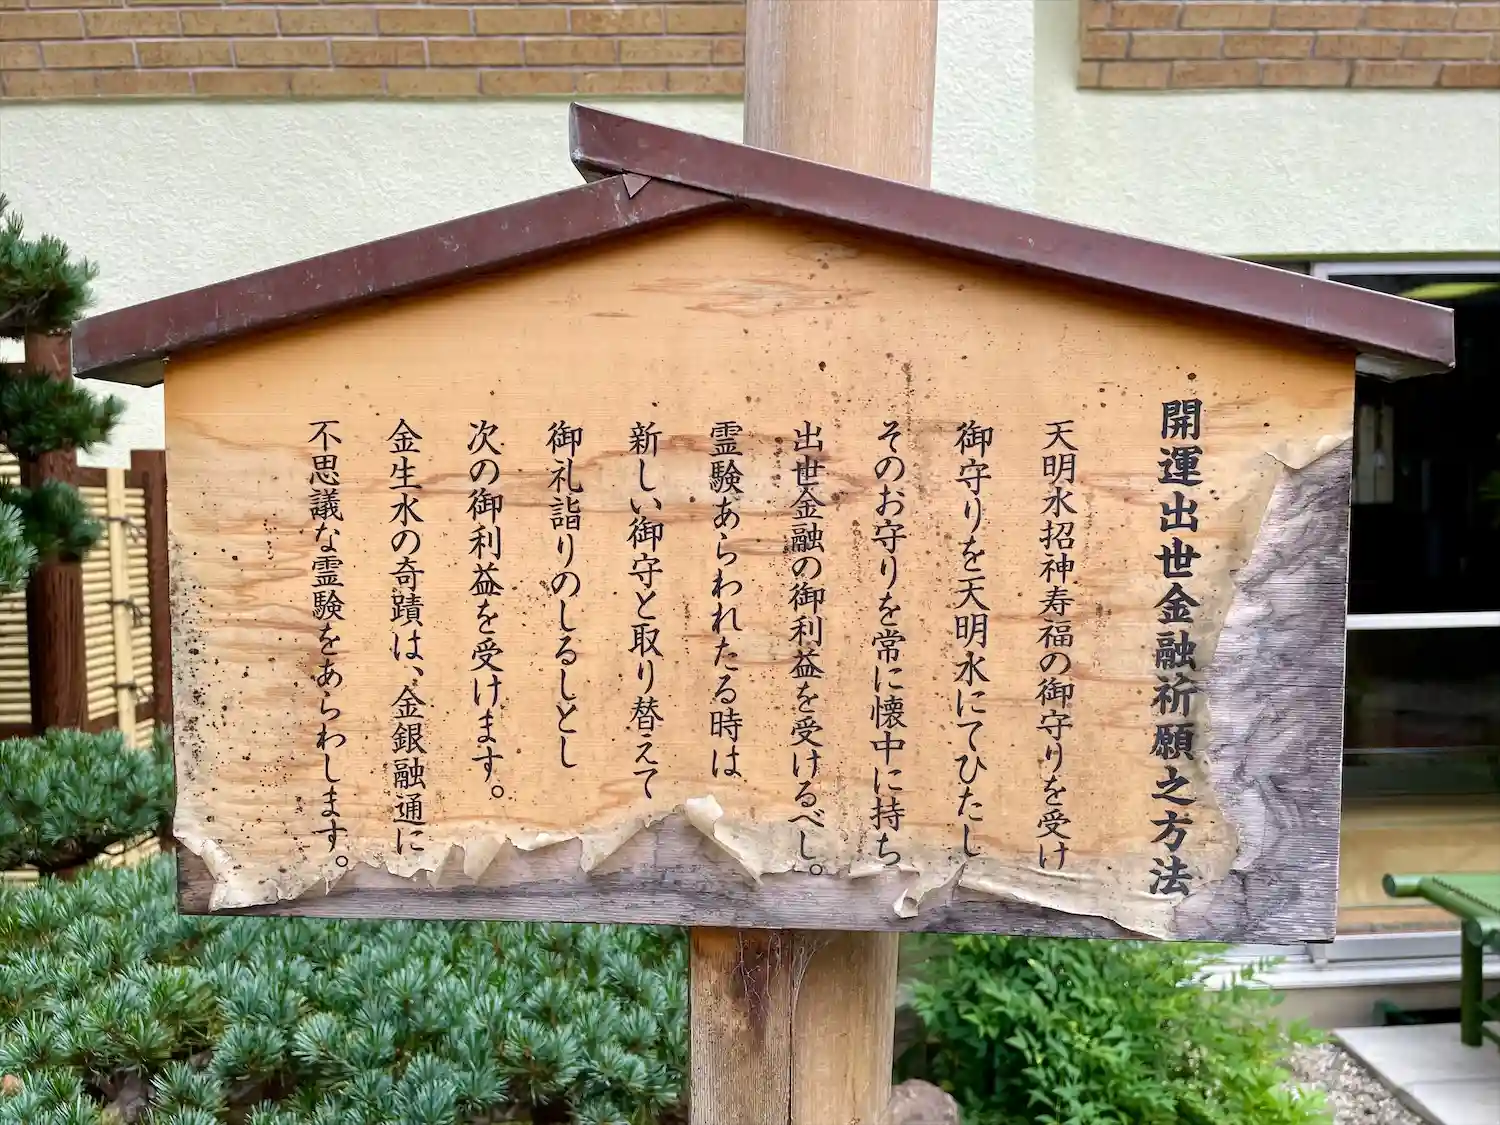 開運出世金融祈願之方法
天明水招神寿福の御守りを受け
御守りを天明水にてひたし
そのお守りを常に懐中に持ち
出世金融の御利益を受けるべし。
霊験あらわれたる時は
新しい御守と取り替えて
御礼詣りのしるしとし
次の御利益を受けます。
金生水の奇蹟は、金銀融通に
不思議な霊験をあらわします。